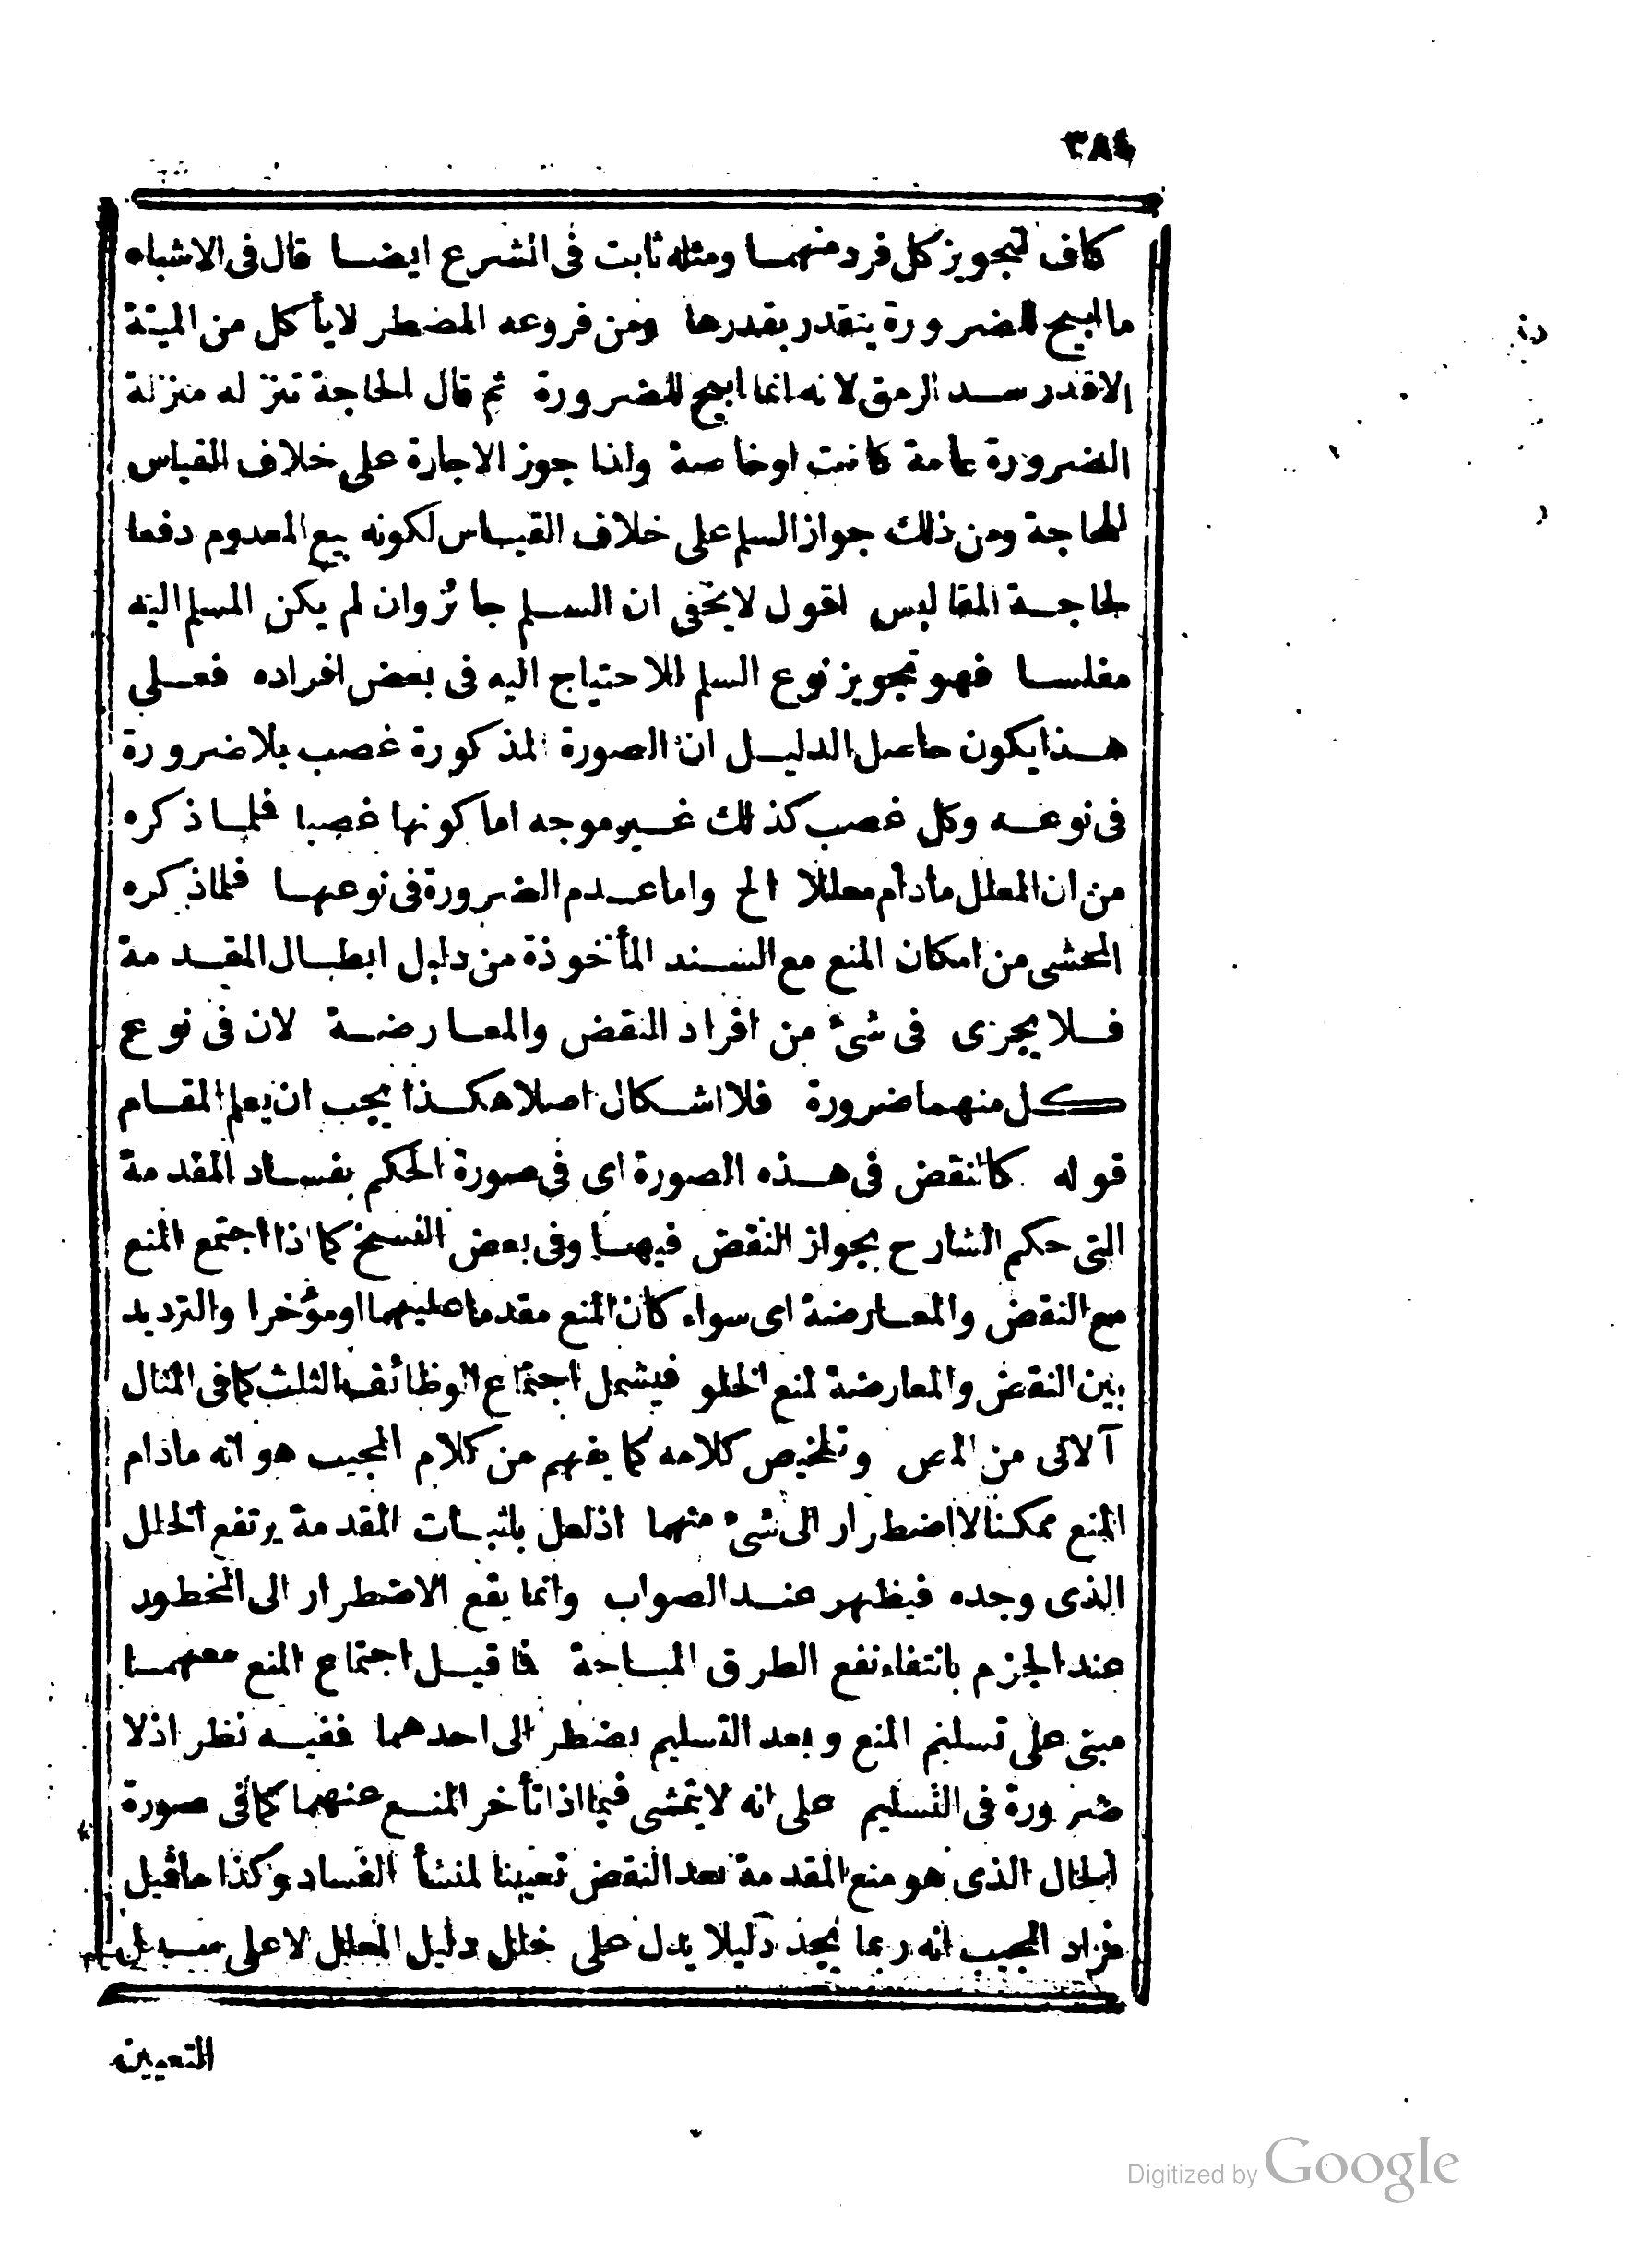 ٣٨٤
كاف لتجويز كل فرد منهما ومثله ثابت فى الشرع ايضا قال فى الاشباه
ما ابيح للضرورة يتقدر بقدرها ومن فروعه المضطر لا يأكل من الميتة
الا قدر سد الرمق لانه انما ابيح للضرورة ثم قال الحاجة تنزله منزلة
الضرورة عامة كانت او خاصة ولذا جوز الاجارة على خلاف القياس
للحاجة ومن ذلك جواز السلم على خلاف القياس لكونه بيع المعدوم دفعا
لحاجة المفاليس اقول لا يخفى ان السلم جائز وان لم يكن المسلم اليه
مفلسا فهو تجويز نوع السلم للاحتياج اليه فى بعض افراده فعلى
هذا يكون حاصل الدليل ان الصورة المذكورة غصب بلا ضرورة
فى نوعه وكل غصب كذلك غير موجه اما كونها غصبا فلما ذكره
من ان المعلل مادام معللا الخ واما عدم الضرورة فى نوعها فلما ذكره
المحشى من امكان المنع مع السند المأخوذة من دليل ابطال المقدمة
فلا يجرى فى شئ من افراد النقض والمعارضة لان فى نوع
كل منهما ضرورة فلا اشكال اصلا هكذا يجب ان يعلم المقام
قوله كالنقض فى هذه الصورة اى فى صورة الحكم بفساد المقدمة
التى حكم الشارح بجواز النقض فيها وفى بعض النسخ كما اذا اجتمع المنع
مع النقض والمعارضة اى سواء كان المنع مقدما عليهما او مؤخرا والترديد
بين النقض والمعارضة لمنع الخلو فيشمل اجتماع الوظائف الثلث كما فى المثال
آلاتى من المص وتلخيص كلامه كما يفهم من كلام المجيب هو انه مادام
المنع ممكنا لا اضطرار الى شئ منهما اذ لعل باثبات المقدمة يرتفع الخلل
الذى وجده فيظهر عند الصواب وانما يقع الاضطرار الى المخطور
عند الجزم بانتفاء نفع الطرق المباحة فما قيل اجتماع المنع معهما
مبنى على تسليم المنع وبعد التسليم يضطر الى احدهما ففيه نظر اذ لا
ضرورة فى التسليم على انه لا يتمشى فيما اذا تأخر المنع عنهما كما فى صورة
الحال الذى هو منع المقدمة بعد النقض تعيينا لمنشأ الفساد وكذا ما قيل
مراد المجيب انه ربما يجد دليلا يدل على خلل دليل المعلل لا على سبيل
التعيين
Digitized by Google